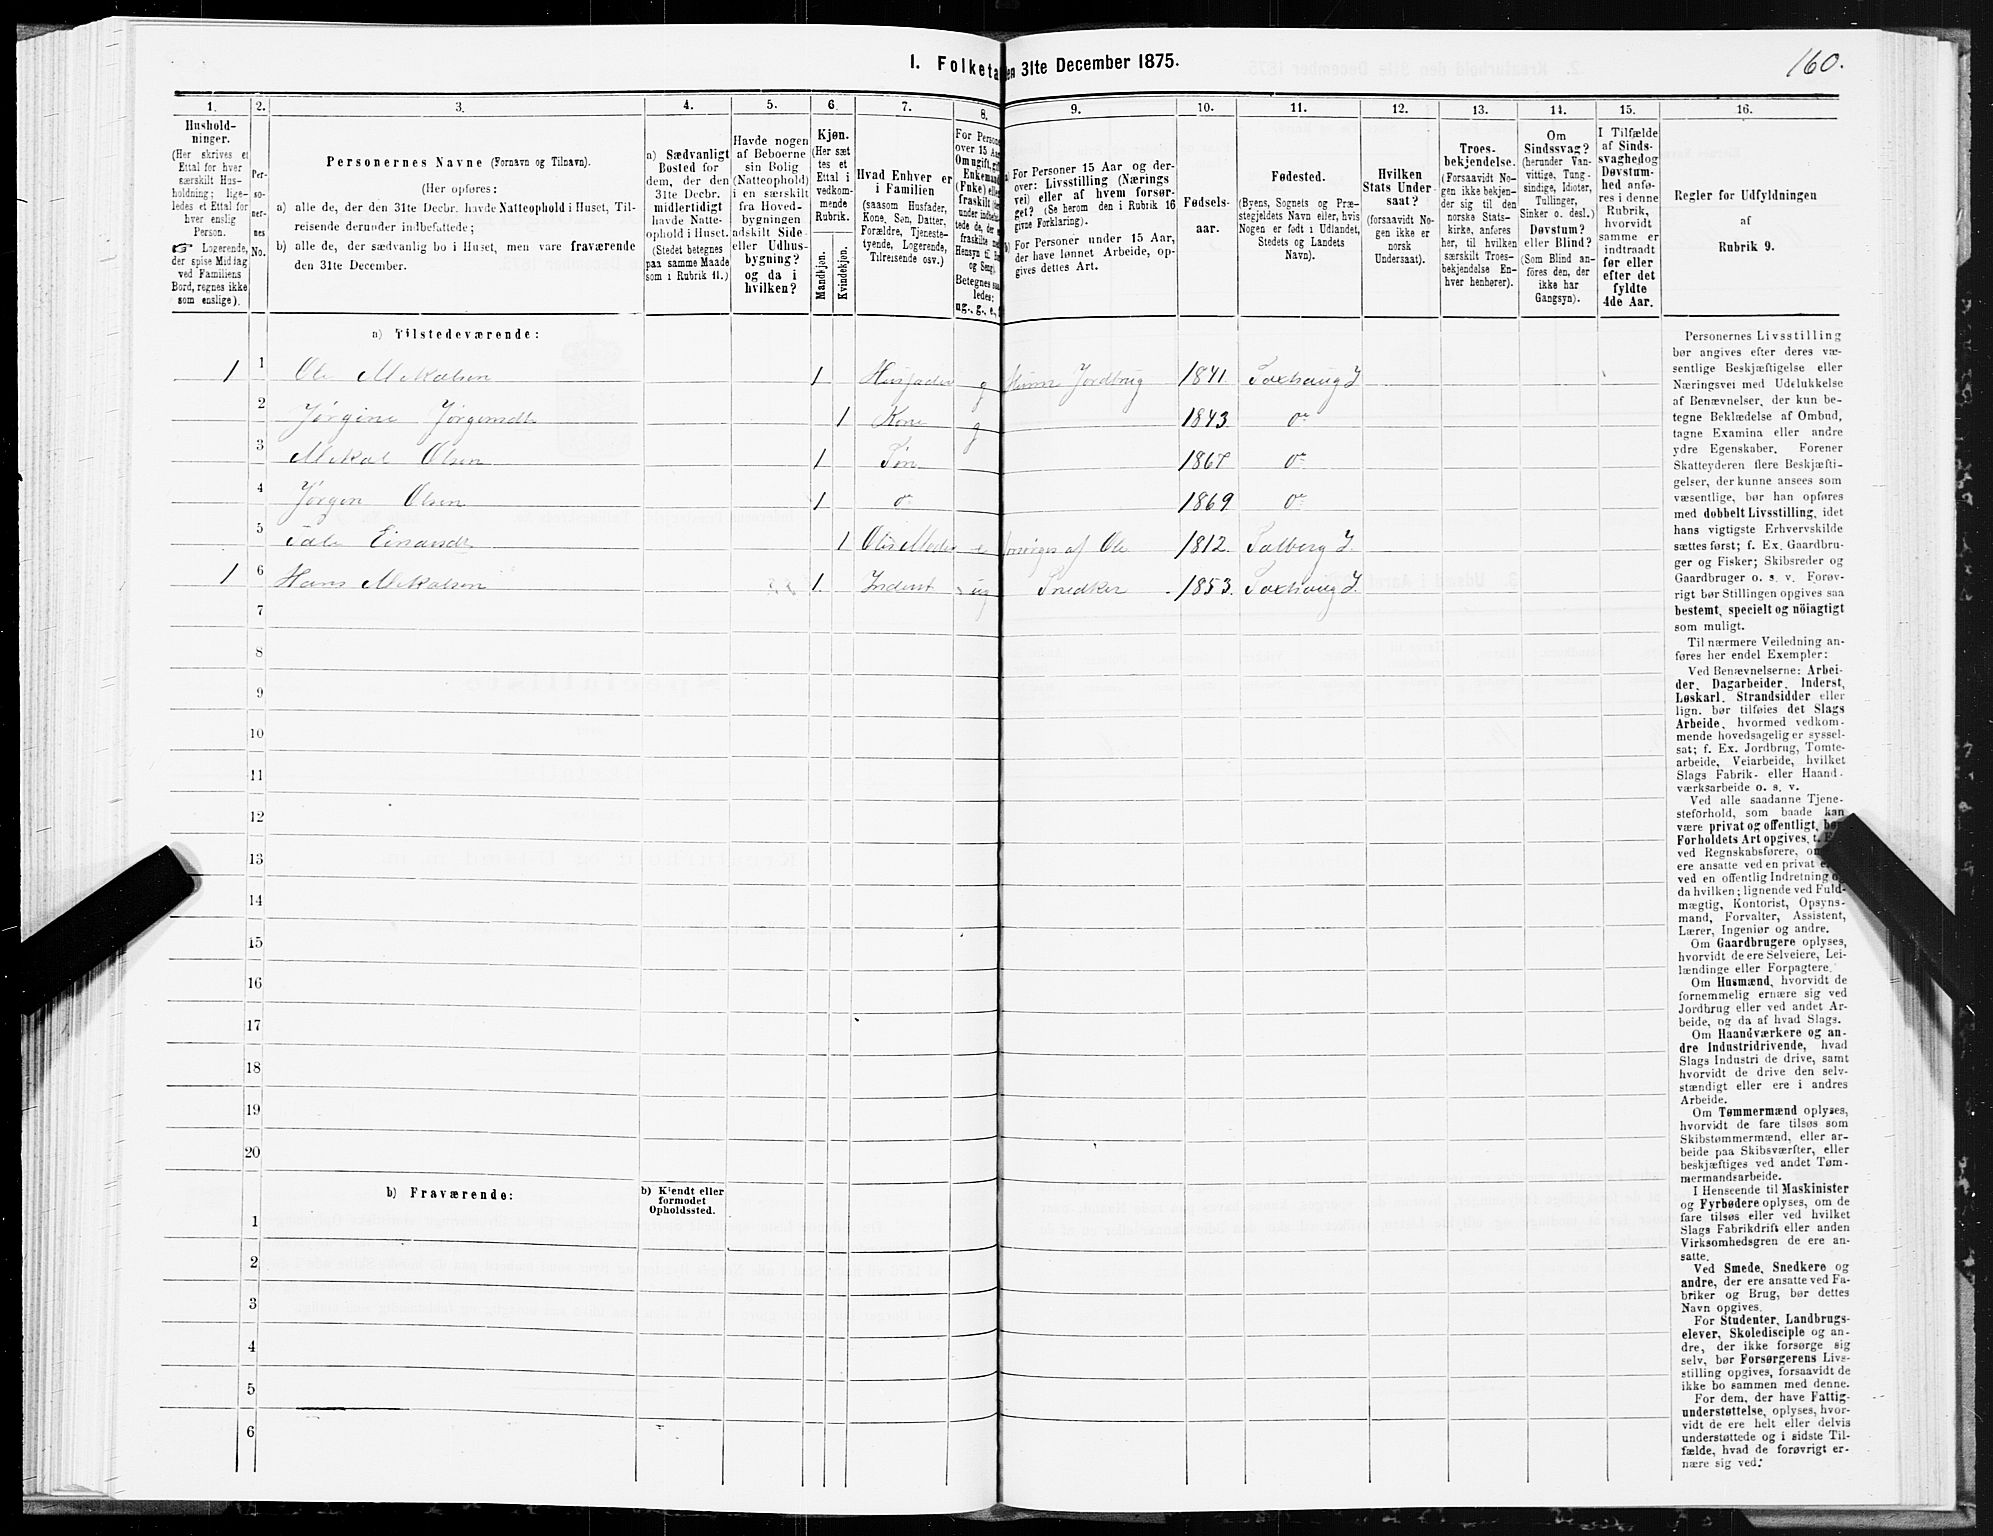 160.
I. Folketa en 31te December 1875.
1. 2. 3. 4. 5. 6. 7. 8. 9. 10. 11. 12. 13. 14. 15. 16.
Hushold-
ninger.
(Her skrives et
Ettal for hver
særskilt Hus-
holdning; lige-
ledes et Ettal for
hver enslig
Person.
☞ Logerende,
der spise Middag
ved Familiens
Bord, regnes ikke
som enslige).
Per-
so-
ner-
nes
No.
Personernes Navne (Fornavn og Tilnavn).
(Her opføres:
a) alle de, der den 31te Decbr. havde Natteophold i Huset, Til-
reisende derunder indbefattede;
b) alle de, der sædvanlig bo i Huset, men vare fraværende
den 31te December.
a) Sædvanligt
Bosted for
dem, der den
31te Decbr.
midlertidigt
havde Natte-
ophold i Huset.
(Stedet betegnes
paa samme Maade
som i Rubrik 11.)
Havde nogen
af Beboerne
sin Bolig
(Natteophold)
i en særskilt
fra Hoved-
bygningen
adskilt Side-
eller Udhus-
bygning?
og da i
hvilken?
Kjøn.
(Her sæt
tes et
Ettal i
vedkom-
mende
Rubrik.
Mandkjøn.
Kvindekjøn.
Hvad Enhver er
i Familien
(saasom Husfader,
Kone, Søn, Datter,
Forældre, Tjeneste-
tyende, Logerende,
Tilreisende osv.)
For Person
over 15 Aar
Om ugift, gift
Enkemand
(Enke) eller
fraskilt
Betegnes saa
ledes:
ug., g., e.,
a) For Personer 15 Aar og der-
over: Livsstilling (Nærings
vei) eller af hvem forsør-
get? (Se herom den i Rubrik 16
givne Forklaring).
b) For Personer under 15 Aar,
der have lønnet Arbeide, op-
gives dettes Art.
Fødsels-
aar.
Fødested.
(Byens, Sognets og Præ-
stegjeldets Navn eller, hvis
Nogen er født i Udlandet,
Stedets og Landets
Navn).
Hvilken
Stats Under-
saat?
(forsaavidt No-
gen ikke er
norsk
Undersaat).
Troes-
bekjendelse.
(Forsaavidt No-
gen ikke bekjen-
der sig til den
norske Stats-
kirke, anføres
her, til hvilken
særskilt Troes-
bekjendelse En-
hver henhører).
Om
Sindssvag?
(herunder Van-
vittige, Tung-
sindige, Idioter,
Tullinger,
Sinker o. desl.)
Døvstum?
eller Blind?
(Som Blind an-
føres den, der
ikke har
Gangsyn).
I Tilfælde
af Sinds-
svaghed og
Døvstum-
hed anfø-
res i denne
Rubrik,
hvorvidt
samme er
indtraadt
før eller
efter det
fyldte
4de Aar.
Regler for Udfyldningen
af
Rubrik 9.
a) Tilstedeværende:
1 1 Ole Mekalsen 1 Husfader g Jordbrug 1841. Saxhaug I
2 Jørgine Jørgensdt 1 Kone g 1843. do
3 Mekal Olsen 1 Søn 1867 do
4 Jørgen Olsen 1 do 1869 do
5 Einarsdt 1 Oles Moder e forsørges af Ole 1812. Salberg I.
1 6 Hans Mekalsen 1. Inderst ug Snedker 1853. Saxhaug I.
7
8
9
10
11
12
13
14
15
16
17
18
19
20
b) Fraværende:
b) Kjendt eller
formodet
Opholdssted.
1
2
3
4
5
6
Personernes Livsstilling
bør angives efter deres væ-
sentlige Beskjæftigelse eller
Næringsvei med Udelukkelse
af Benævnelser, der kun be-
tegne Beklædelse af Ombud,
tagne Examina eller andre
ydre Egenskaber. Forener
Skatteyderen flere Beskjæfti-
gelser, der kunne ansees som
væsentlige, bør han opføres
med dobbelt Livsstilling, idet
hans vigtigste Erhvervskilde
sættes først; f. Ex. Gaardbru-
ger og Fisker; Skibsreder og
Gaardbruger o. s. v. Forøv-
rigt bør Stillingen opgives saa
bestemt, specielt og nöiagtigt
som muligt.
Til nærmere Veiledning an-
føres her endel Exempler:
Ved Benævnelserne: Arbei-
der, Dagarbeider, Inderst,
Løskarl, Strandsidder eller
lign. bør tilføies det Slags
Arbeide, hvormed vedkom-
mende hovedsagelig er syssel-
sat; f. Ex. Jordbrug, Tomte-
arbeide, Veiarbeide, hvilket
Slags Fabrik- eller Haand-
værksarbeide o. s. v.
Ved alle saadanne Tjene-
steforhold, som baade kan
være privat og offentligt, bør
Forholdets Art opgives,
ved Regnskabsførere,
ere ansatte ved en privat
ved en offentlig Indretning
da hvilken; lignende ved Fuld-
mægtig, Kontorist, Opsyns-
mand, Forvalter, Assistent,
Lærer, Ingeniør og andre.
Om Gaardbrugere oplyses,
hvorvidt de ere Selveiere, Lei-
lændinge eller Forpagtere.
Om Husmænd, hvorvidt de
fornemmelig ernære sig ved
Jordbrug eller ved andet Ar-
beide, og da af hvad Slags.
Om Haandværkere og an-
dre Industridrivende, hvad
Slags Industri de drive, samt
hvorvidt de drive den selv-
stændigt eller ere i andres
Arbeide.
Om Tømmermænd oplyses,
hvorvidt de fare tilsøs som
Skibstømmermænd, eller ar-
beide paa Skibsværfter, eller
beskjæftiges ved andet Tøm-
mermandsarbeide.
I Henseende til Maskinister
og Fyrbødere oplyses, om de
fare tilsøs eller ved hvilket
Slags Fabrikdrift eller anden
Virksomhedsgren de ere an-
satte.
Ved Smede, Snedkere og
andre, der ere ansatte ved Fa-
briker og Brug, bør dettes
Navn opgives.
For Studenter, Landbrugs-
elever, Skoledisciple og an-
dre, der ikke forsørge sig
selv, bør Forsørgerens Livs-
stilling opgives, forsaavidt de
ikke bo sammen med denne.
For dem, der have Fattig-
understøttelse, oplyses, hvor-
vidt de ere helt eller delvis
understøttede og i sidste Til-
fælde, hvad de forøvrigt er-
nære sig ved.